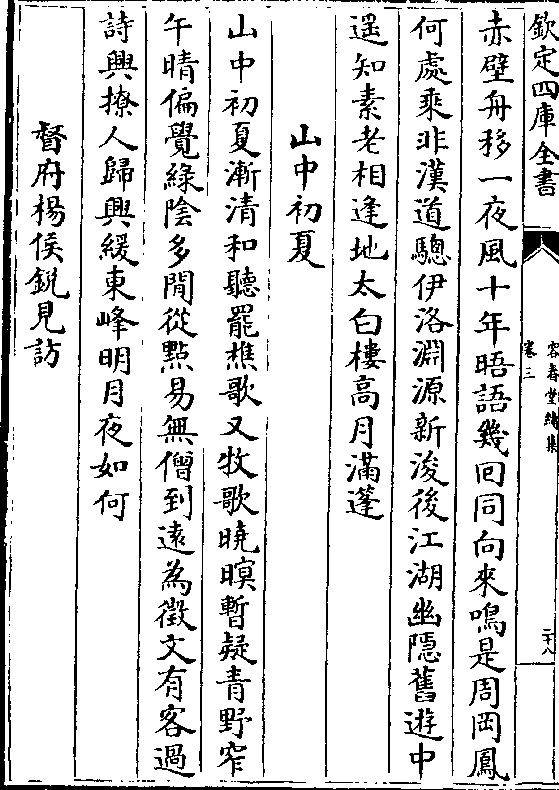 欽定四庫全書
容春堂續集
卷三
二十八
赤壁舟移一夜風十年晤語幾回同向來鳴是周岡鳳
何處乘非漢道驄伊洛淵源新浚後江湖幽隱舊遊中
遥知素老相逢地太白樓高月滿蓬
山中初夏
山中初夏漸清和聽罷樵歌又牧歌曉暝暫疑青野窄
午晴偏覺綠陰多閒從㸃易無僧到遠為徵文有客過
詩興撩人歸興緩東峰明月夜如何
督府楊侯銳見訪